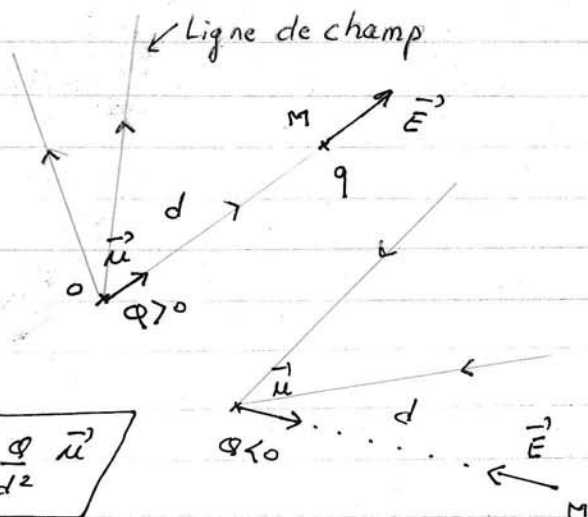 Ligne de champ
M
E⃗
q
d
u⃗
O
Q>0
u⃗
d
Q<0
E⃗
M
Q/d² u⃗